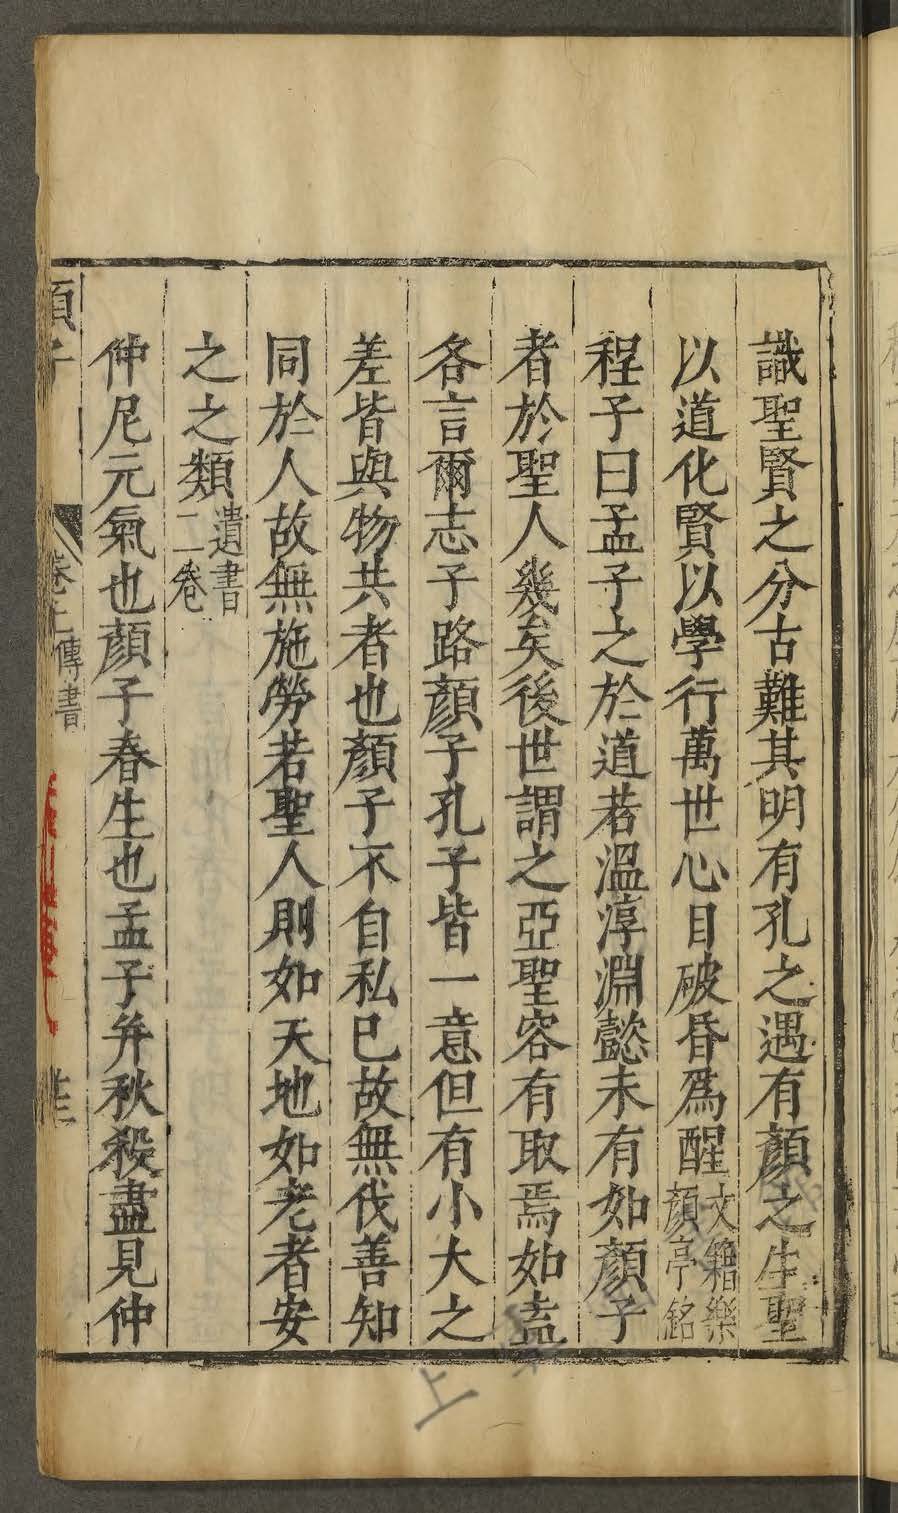 識聖賢之分古難其明有孔之遇有顏之生聖
以道化賢以學行萬世心目破昏爲醒文籍樂顏亭銘
程子曰孟子之於道若溫淳淵懿未有如顏子
者於聖人幾矣後世謂之亞聖容有取焉如盍
各言爾志子路顏子孔子皆一意但有小大之
差皆與物共者也顏子不自私已故無伐善知
同於人故無施勞若聖人則如天地如老者安
之之類遺書二卷
仲尼元氣也顏子春生也孟子并秋殺盡見仲
傳書